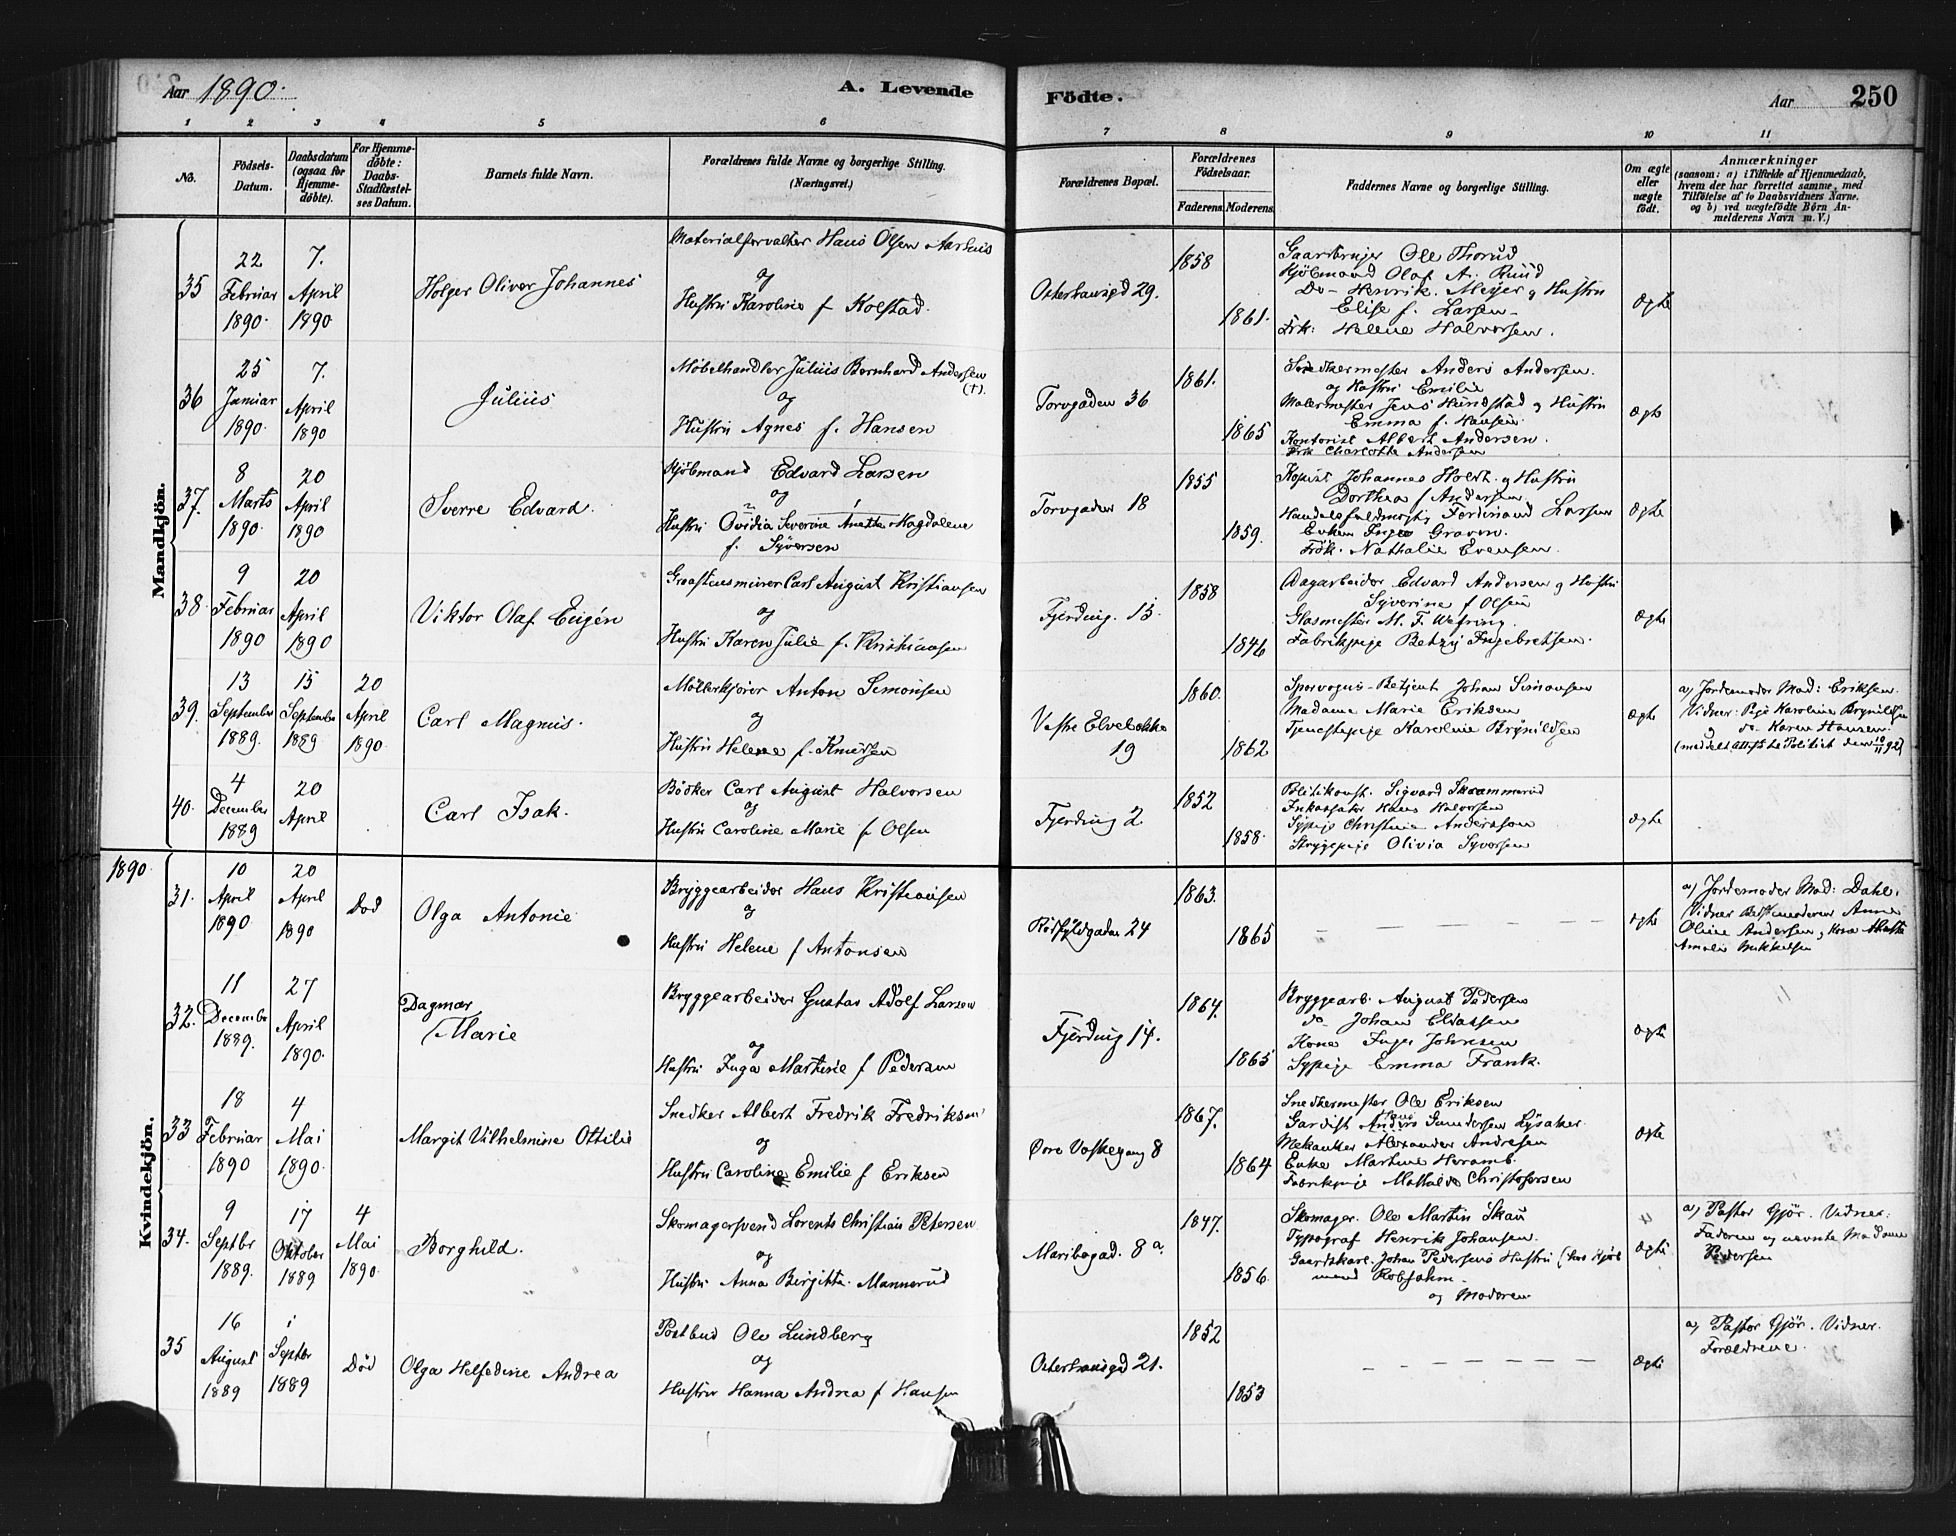 Aar 1890.
A. Levende
Födte.
Aar
250
1 2 3 4 5 6 7 8 9 10 11
No.
Födsels-
Datum.
Daabsdatum
(ogsaa for
Hjemme-
döbte).
For Hjemme-
döbte:
Daabs-
Stadfæstel-
ses Datum.
Barnets fulde Navn.
Forældrenes fulde Navne og borgerlige Stilling.
(Næringsvei.)
Forældrenes Bopæl.
Forældrenes
Födselsaar.
Faderens. Moderens.
Faddernes Navne og borgerlige Stilling.
Om ægte
eller
uægte
födt.
Anmærkninger
(saasom: a) i Tilfælde af Hjemmedaab,
hvem der har forrettet samme, med
Tilföielse af to Daabsvidners Navne,
og b) ved uægtefödte Börn An-
melderens Navn m. V.)
Mandkjön.
35
22
Februar
1890.
7.
April
1890
Holger Oliver Johannes
Materialforvalter Hans Olsen Aarhus
og
Hustru Karoline f. Kolstad.
Osterhausgd 29.
1858
1861.
Gaardbruger Ole Thorud
Kjöbmand Olaf A. Ruud
Do - Henrik Meyer og Hustru
Elise f. Larsen
Frk: Helene Halvorsen.
Ægte
36
25
Januar
1890.
7.
April
1890
Julius
Möbelhandler Julius Bernhard Andersen
(†).
og
Hustru Agnes f. Hansen
Torvgaden 36
1861.
1865
Snedkermester Anders Andersen.
og Hustru Emilie
Malermester Jens Hundstad og Hustru
Emma f. Hansen
Kontorist Albert Andersen.
Frk Charlotte Andersen
Ægte
37.
8
Marts
1890.
20
April
1890
Sverre Edvard.
Kjöbmand Edvard Larsen
og
2 1
Hustru Ovidia Severine Anette Magdalene
f. Syversen
Torvgaden 18
1855
1859.
Kopist Johannes Holst og Hustru
Dorthea f Andersen
Handelsfuldmægtig Ferdinand Larsen
Enken Inger Graven.
Frök. Nathalie Evensen.
Ægte
38.
9
Februar
1890
20
April
1890
Viktor Olaf Eugén
Graastensmurer Carl August Kristiansen
og
Hustru Karen Julie f. Kristiansen
Fjerding. 15.
1858
1846
Dagarbeider Edvard Andersen og Hustru
Syverine f Olsen
Glasmester M. F. Wefring.
Fabrikpige Betzy Ingebretsen.
Ægte
39.
13
September
1889.
15
September
1889
20
April
1890.
Carl Magnus.
Möllerkjörer Anton Simonsen
og
Hustru Helene f. Knudsen
Vestre Elvebakke
19
1860.
1862
Sporvogns-Betjent Johan Simonsen
Madame Marie Eriksen
Tjenestepige Karoline Brynildsen
Ægte
a) Jordemoder Mad: Eriksen.
Vidner: Pige Karoline Brynildsen
og do. Karen Hansen.
(meddelt att. til Politiet den 10/11 92)
40.
4
December
1889
20
April
Carl Isak.
Bödker Carl August Halvorsen
og
Hustru Caroline Marie f Olsen
Fjerding 2.
1852
1858.
Politikonst. Sigvard Skrammerud
Inkassator Hans Halvorsen
Sypige Christine Andersson
Strygepige Olivia Syversen
Ægte
1890
Kvindekjön.
31.
10
April
1890
20
April
1890
Död
Olga Antonie
Bryggearbeider Hans Kristiansen
og
Hustru Helene f Antonsen
Rödfyldgaden 24
1863.
1865
Ægte
a) Jordemoder Mad: Dahl.
Vidner Bedstemoderen Anne
Oline Andersen og Kone
Amalie Mikkelsen
32.
11
December
1889.
27
April
1890.
Dagmar
Marie
Bryggearbeider Gustav Adolf Larsen
og
Hustru Inga Martinie f Pedersen
Fjerding 14.
1864.
1865
Bryggearb. August Pedersen
do Johan Eliassen
Kone Inger Johnsen
Sypige Emma Frank.
Ægte
33
18
Februar
1890
4
Mai
1890.
Margit Vilhelmine Ottilie
Snedker Albert Fredrik Fredriksen
og
Hustru Caroline Emilie f Eriksen
Övre Voskegang 8
1867.
1864
Snedkermester Ole Eriksen
Gardist Anders Gundersen Lysaker
Mekaniker Alexander Andresen
Enke Martine Heramb.
Fabrikpige Mathilde Christofersen
Ægte
34.
9
Septbr
1889.
17
Oktober
1889
4
Mai
1890
Borghild.
Skomagersvend Lorents Christian Petersen
og
Hustru Anna Birgitte Mannerud
Maribogad. 8 a.
1847.
1856.
Skomager. Ole Martin Skau
Typograf Henrik Johansen.
Gaardskarl. Johan Pedersens Hustru (hos Kjöb
mand Robsahm
og Moderen
Ægte
a) Pastor Gjör. Vidner:
Faderen og nævnte Madame
Pedersen
35
16
August
1889
1
Septbr
1889
Död
Olga Helfedine Andrea
Postbud Ole Lundberg
og
Hustru Hanna Andrea f Hansen
Osterhausgd 21.
1852
1853
Ægte
a) Pastor Gjör. Vidner.
Forældrene.